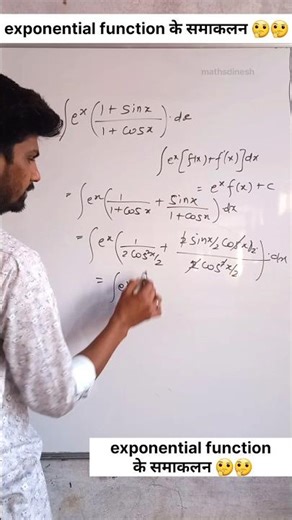 exponential function के समाकलन 🤔🤔
mathsdinesh
∫eˣ(1+sinx/1+cosx)·dx
∫eˣ[f(x)+f'(x)]dx
= eˣ f(x)+c
= ∫eˣ(1/1+cosx + sinx/1+cosx)dx
= ∫eˣ(1/2cos²x/2 + 2sinx/2cosx/2/2cos²x/2)·dx
= ∫eˣ
exponential function
के समाकलन 🤔🤔